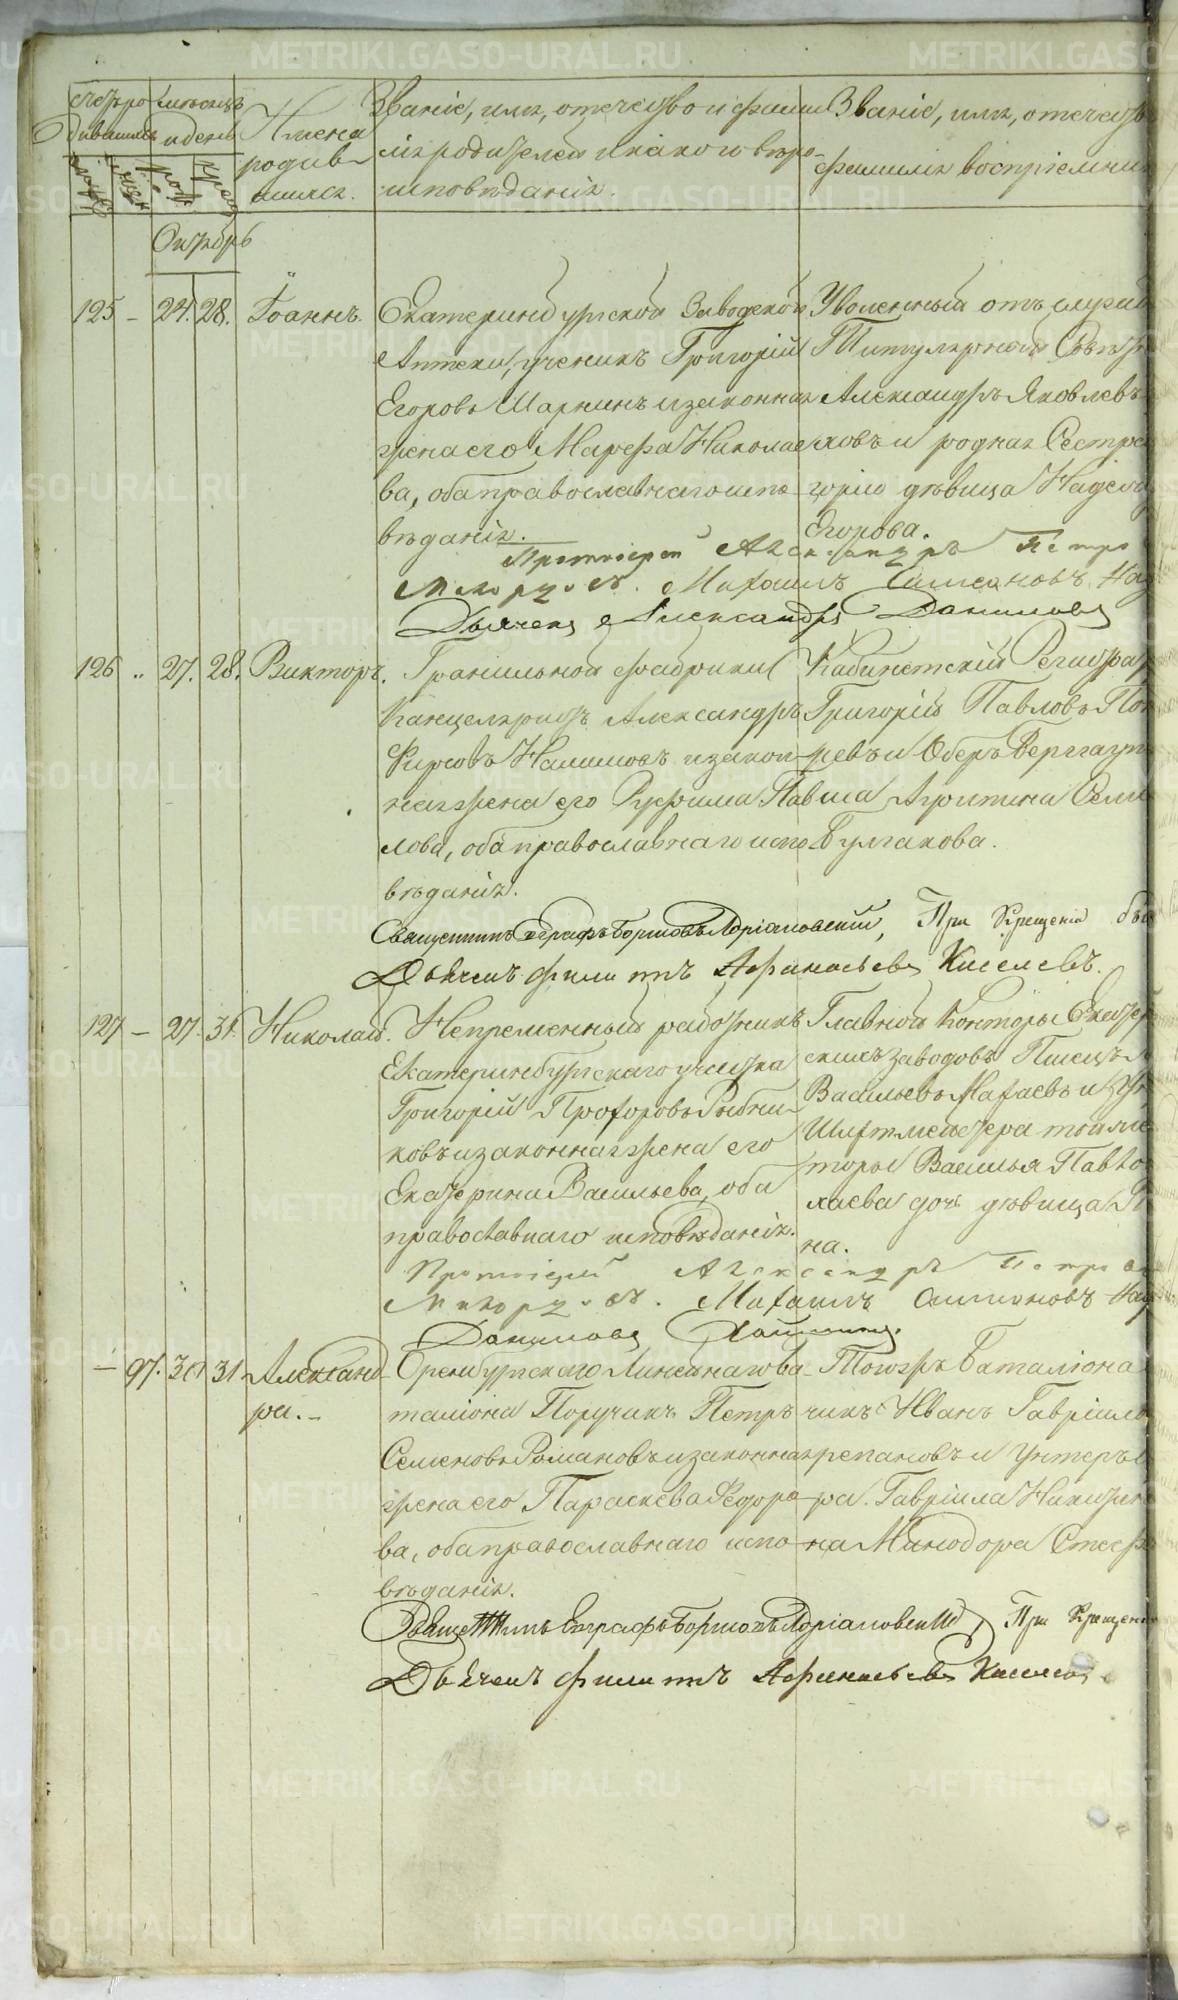 METRIKI.GASO-URAL.RU
Счетъ родившихся
Месяцъ и день
Имена родившихся.
Званіе, имя, отечество и фамилія родителей и какого вероисповеданія.
Званіе, имя, отечество
фамилія воспріемник
Октябрь
125 — 24. 28. Іоаннъ.
Екатеринбургской Заводской
Аптеки, ученикъ Григорій
Егоровъ Шарнинъ и законная
жена его Марфа Николае
ва, оба православнаго испо
веданія.
Уволенный отъ служб
Титулярной Совет
Александръ Яковлевъ
ховъ и родная Сестра
горію девица Надежд
Егорова.
Протоіерей Александръ Петро
Макаровъ. Михаилъ Симановъ
Дьячекъ Александръ Даниловъ
126 .. 27. 28. Викторъ.
Гранильной фабрики
Канцеляристъ Александръ
Фирсовъ Налимовъ и закон
ная жена его Руфима Пав
лова, оба православнаго испо
веданія.
Кабинетскій Регистра
Григорій Павловъ
ревъ и Оберъ Берггаупт
ша Агрипина Семе
Булгакова.
Священникъ Евграфъ Борисовъ Адріановскій, При Крещеніи бы
Дьячекъ Филиппъ Афанасьевъ Киселевъ.
127 — 27. 31. Николай.
Непременный работникъ
Екатеринбургскаго участка
Григорій Прохоровъ Рыбни
ковъ и законная жена его
Екатерина Васильева, оба
православнаго исповеданія.
Главной Конторы Екатер
скихъ заводовъ Писецъ
Васильевъ Махаевъ и
Шихтмейстера той же
торы Василья Павло
хаева дочь девица
на.
Протоіерей Александръ Петро
Макаровъ. Михаилъ Симановъ
Даниловъ
— 97. 30 31 Александ
ра. —
Оренбургскаго Линейнаго ба
таліона Поручикъ Петръ
Семеновъ Романовъ и законная
жена его Параскева Федоро
ва, оба православнаго испо
веданія.
Тогожъ Баталіона
чикъ Иванъ Гавріило
репановъ и Унтеръ
ра Гавріила Никифо
на Минодора Стеф
Священникъ Евграфъ Борисовъ Адріановскій, При Крещеніи
Дьячекъ Филиппъ Афанасьевъ Киселевъ.